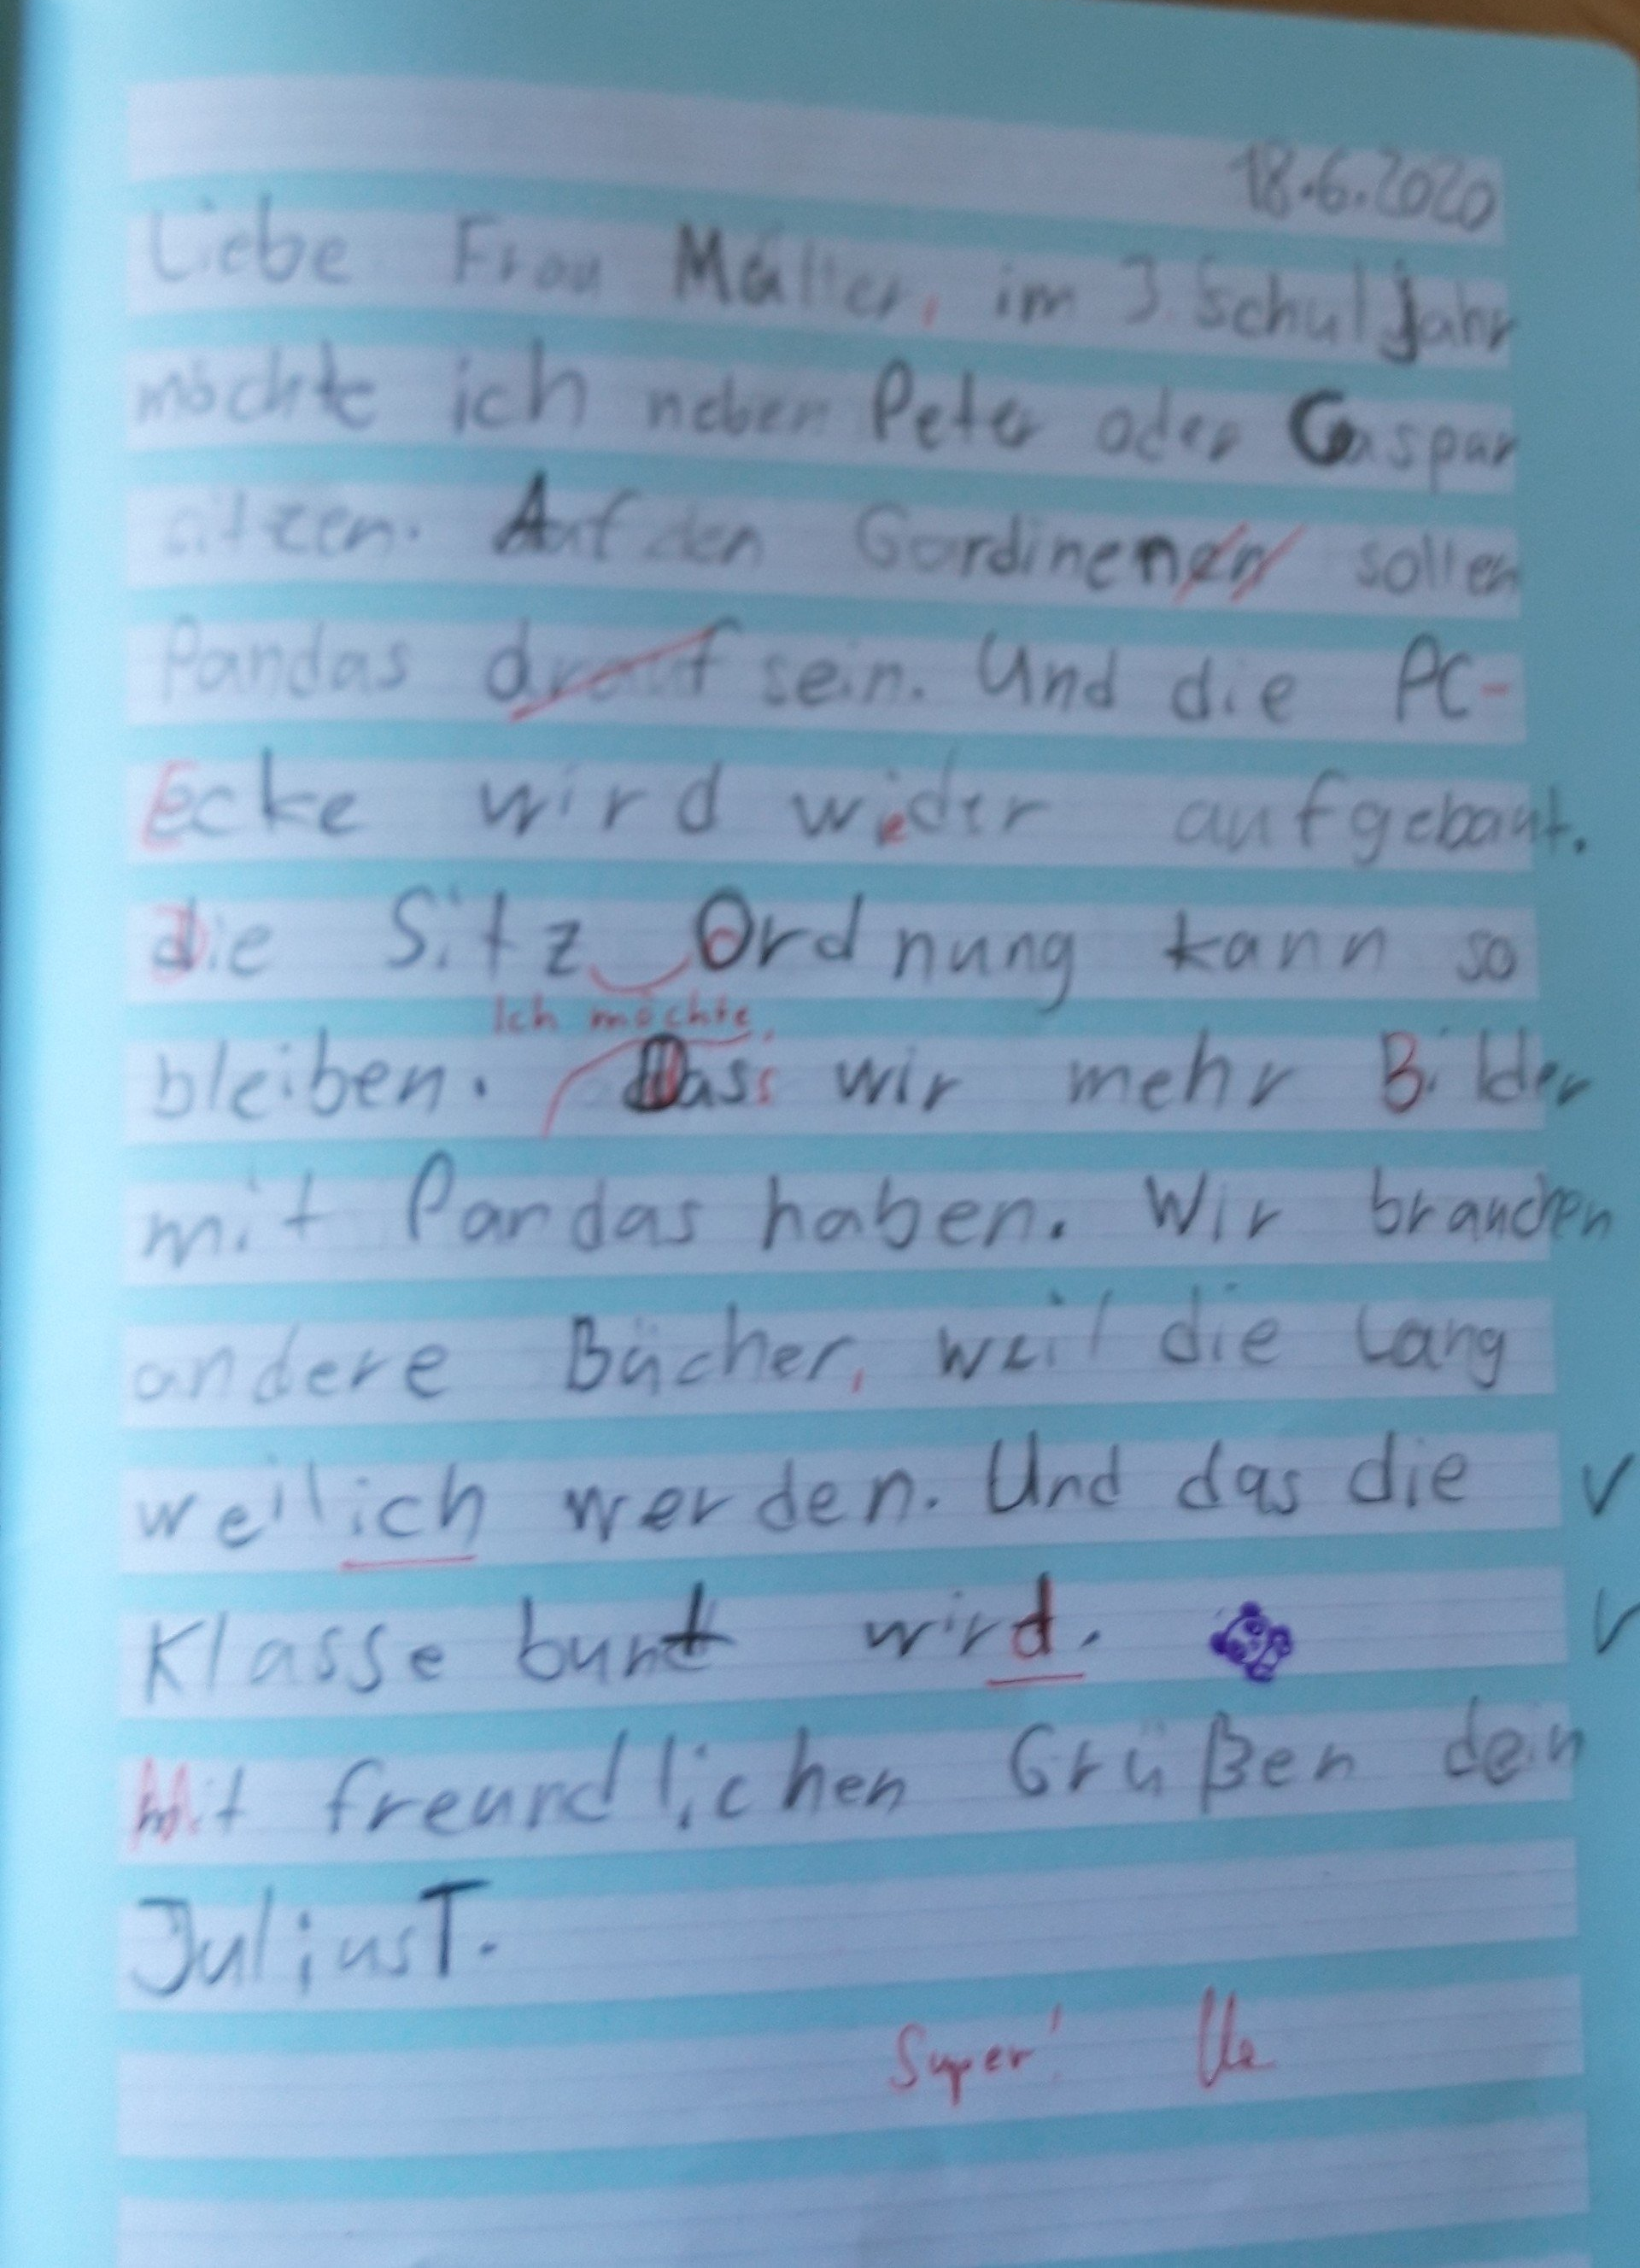 18.6.2020
Liebe Frau Müller, im 3. Schuljahr
möchte ich neben Peter oder Caspar
sitzen. Auf den Gardinenen sollen
Pandas drauf sein. Und die PC-
Ecke wird wieder aufgebaut.
Die Sitz Ordnung kann so
Ich möchte,
bleiben. Dass wir mehr Bilder
mit Pandas haben. Wir brauchen
andere Bücher, weil die lang
weilich werden. Und das die V
Klasse bunt wird. V
Mit freundlichen Grüßen dein
Julius T.
Super!